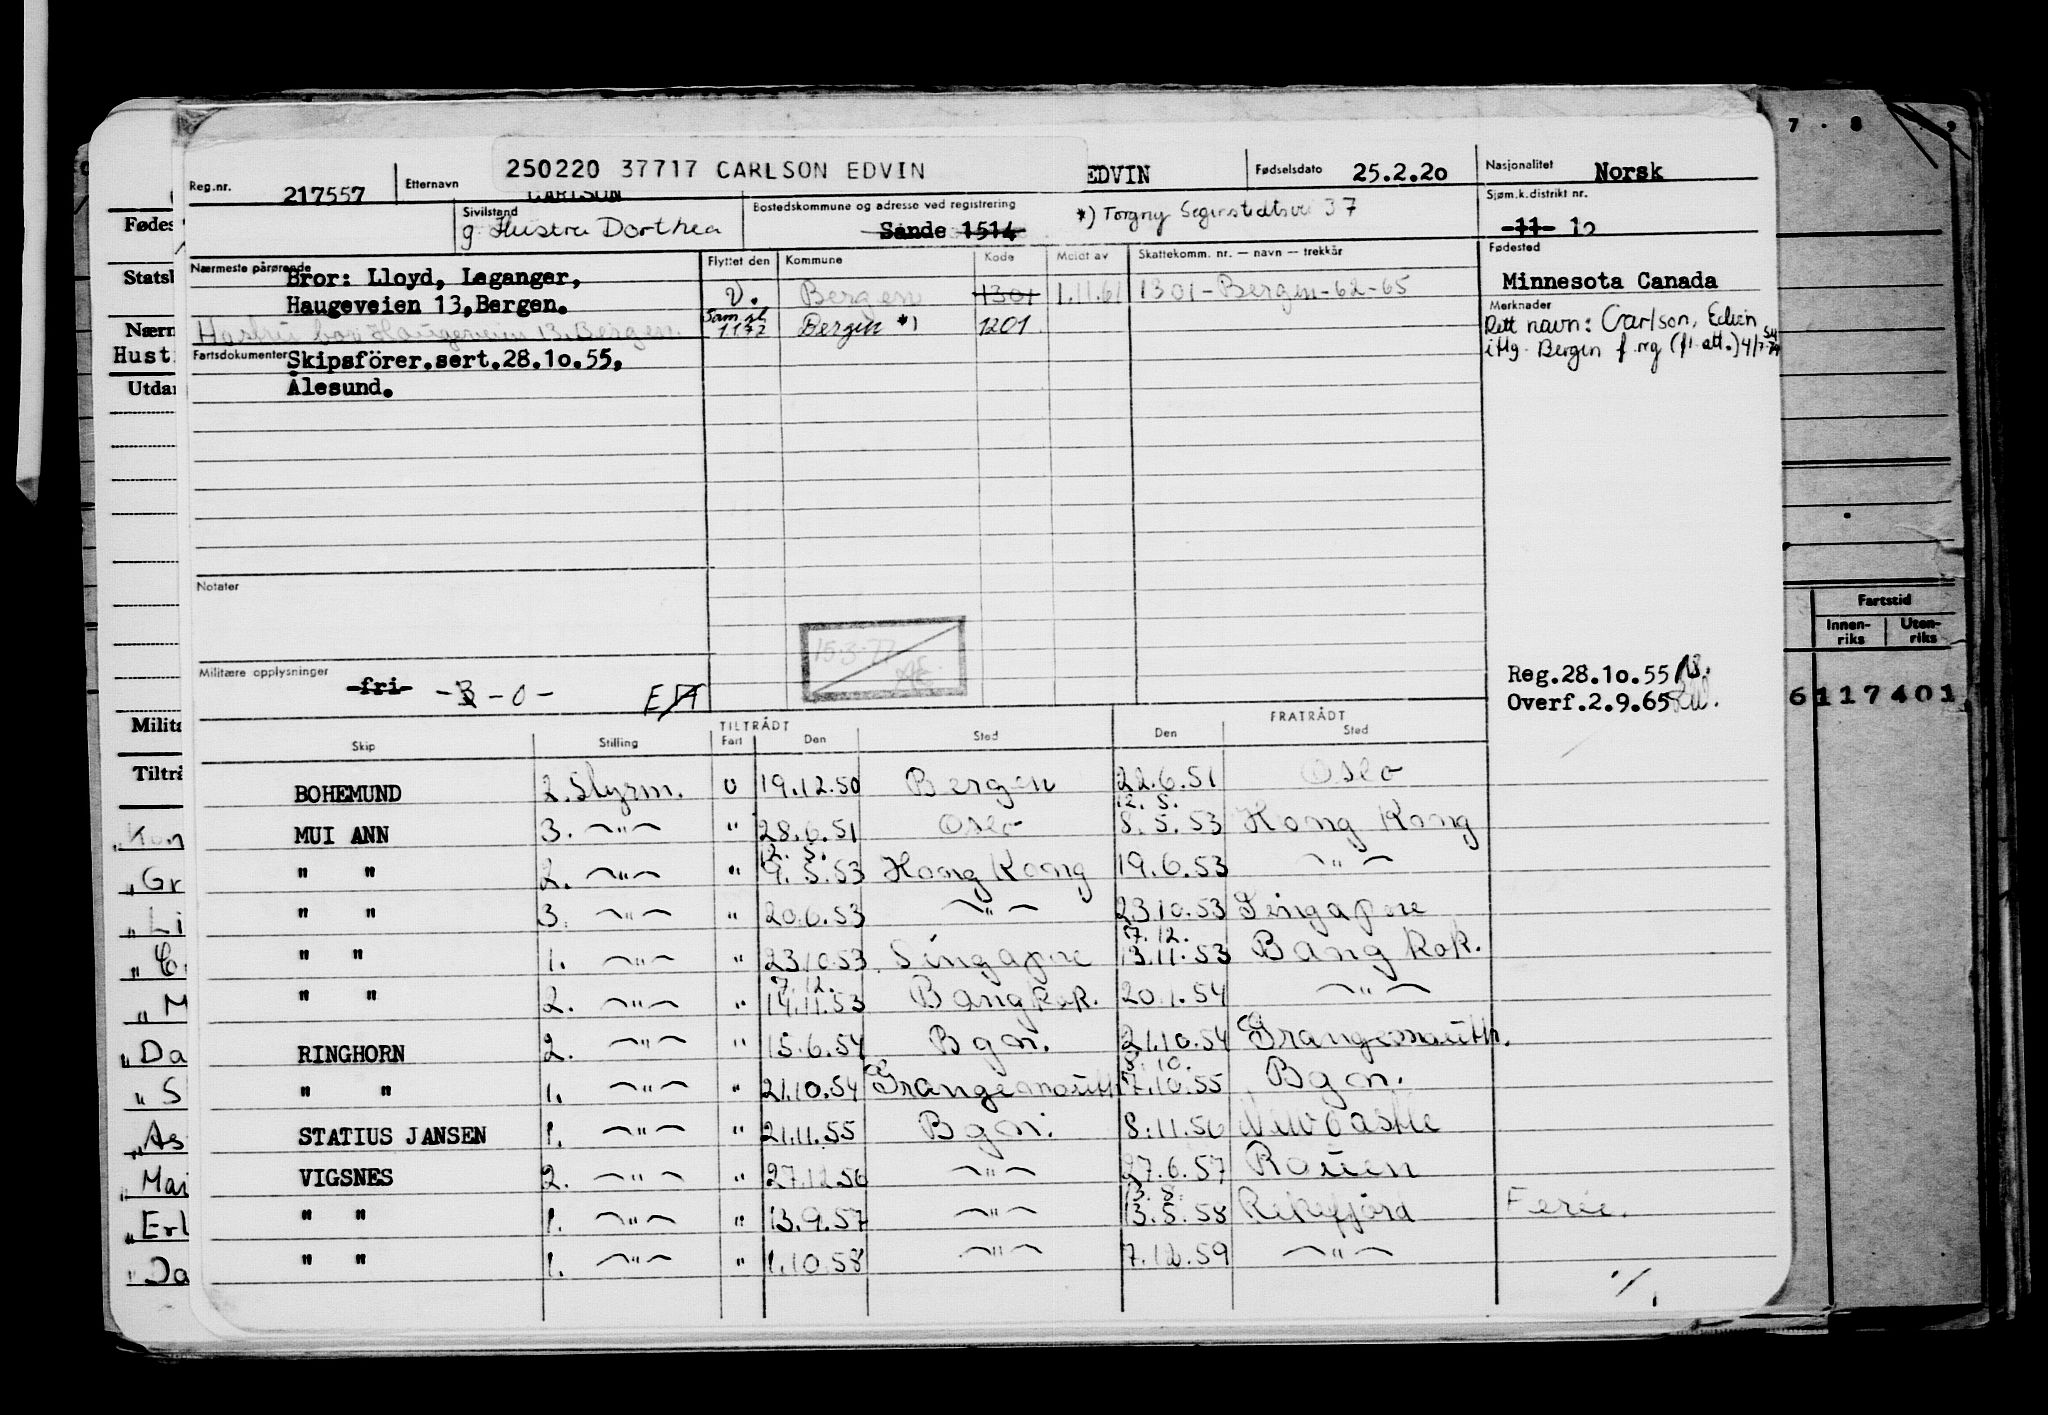 7 · 8 · 9
250220 37717 CARLSON EDVIN
Reg.nr. 217557 Etternavn CARLSON EDVIN Fødselsdato 25.2.20 Nasjonalitet Norsk
Sivilstand g Hustru Dorthea Bostedskommune og adresse ved registrering Sande 1514 *) Torgny Segerstedtsvei 37 Sjøm.k.distrikt nr. 11 12
Fødes
Nærmeste pårørende Bror: Lloyd, Løganger, Flyttet den Kommune Kode Meldt av Skattekomm. nr. — navn — trekkår Fødested
Statsb
Haugeveien 13, Bergen. V. Bergen 1301 1.11.61 1301-Bergen-62-65 Minnesota Canada
Merknader
Nærm
Hustru bor Haugeveien 13, Bergen. 1172 Bergen *) 1201 Rett navn: Carlson, Edvin
i flg. Bergen f.reg (fl. att.)
Hust
Fartsdokumenter Skipsförer.sert.28.10.55,
Ålesund.
Utdan
Notater
15.3.77
Fartstid
Innen-riks Uten-riks
Militære opplysninger fri - 3 - 0 - Reg.28.10.55
Overf.2.9.65
6117401
Milita
TILTRÅDT FRATRÅDT
Skip Stilling Fart Den Sted Den Sted
Tiltrå
BOHEMUND 2. Styrm. U 19.12.50 Bergen 22.6.51 Oslo
12. 5.
MUI ANN 3. —"— " 28.6.51 Oslo 8.5.53 Hong Kong
12. 5.
" " 2. —"— " 9.5.53 Hong Kong 19.6.53 —"—
" " 3. —"— " 20.6.53 —"— 23.10.53 Singapore
7.12.
" " 1. —"— " 23.10.53 Singapore 13.11.53 Bangkok.
7.12.
" " 2. —"— " 14.11.53 Bangkok. 20.1.54 —"—
RINGHORN 2. —"— " 15.6.54 Bgn. 21.10.54 Grangemouth.
8.10.
" " 1. —"— " 21.10.54 Grangemouth 7.10.55 Bgn.
STATIUS JANSEN 1. —"— " 21.11.55 Bgn. 8.11.56 Newcastle
VIGSNES 2. —"— " 27.12.56 —"— 27.6.57 Rouen
13.8.
" " 1. —"— " 13.9.57 —"— 13.5.58 Rekefjord Ferie.
" " 1. —"— " 1.10.58 —"— 7.12.59 —"—
"Gr
"Li
"M
"Da
"S
"As
"Mai
"Erl
"Da